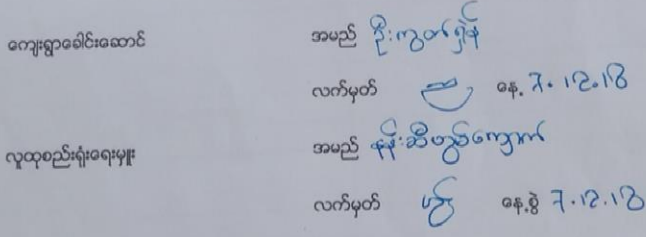 ကျေးရွာခေါင်းဆောင် အမည် ဦးကွတ်ရှိန်
လက်မှတ် နေ့ 7.12.18
လူထုစည်းရုံးရေးမှူး အမည်
လက်မှတ် နေ့စွဲ 7.12.18